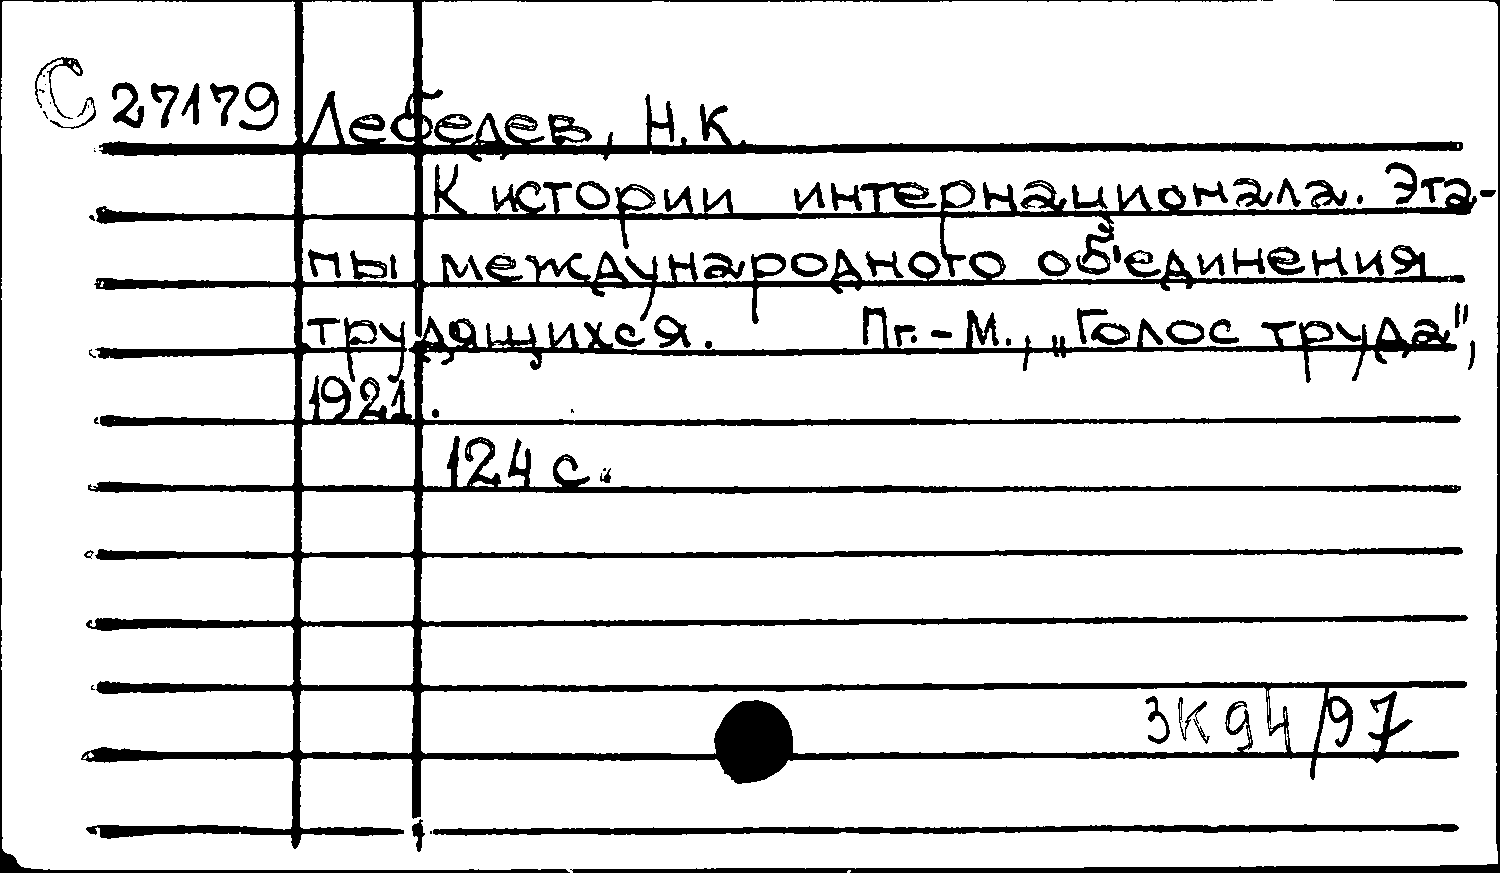 С 27179 Лебедев, Н.К.
К истории интернационала. Эта-
пы международного об'единения
трудящихся. Пг.-М., „Голос труда",
1921.
124 с.
ЗК94/97